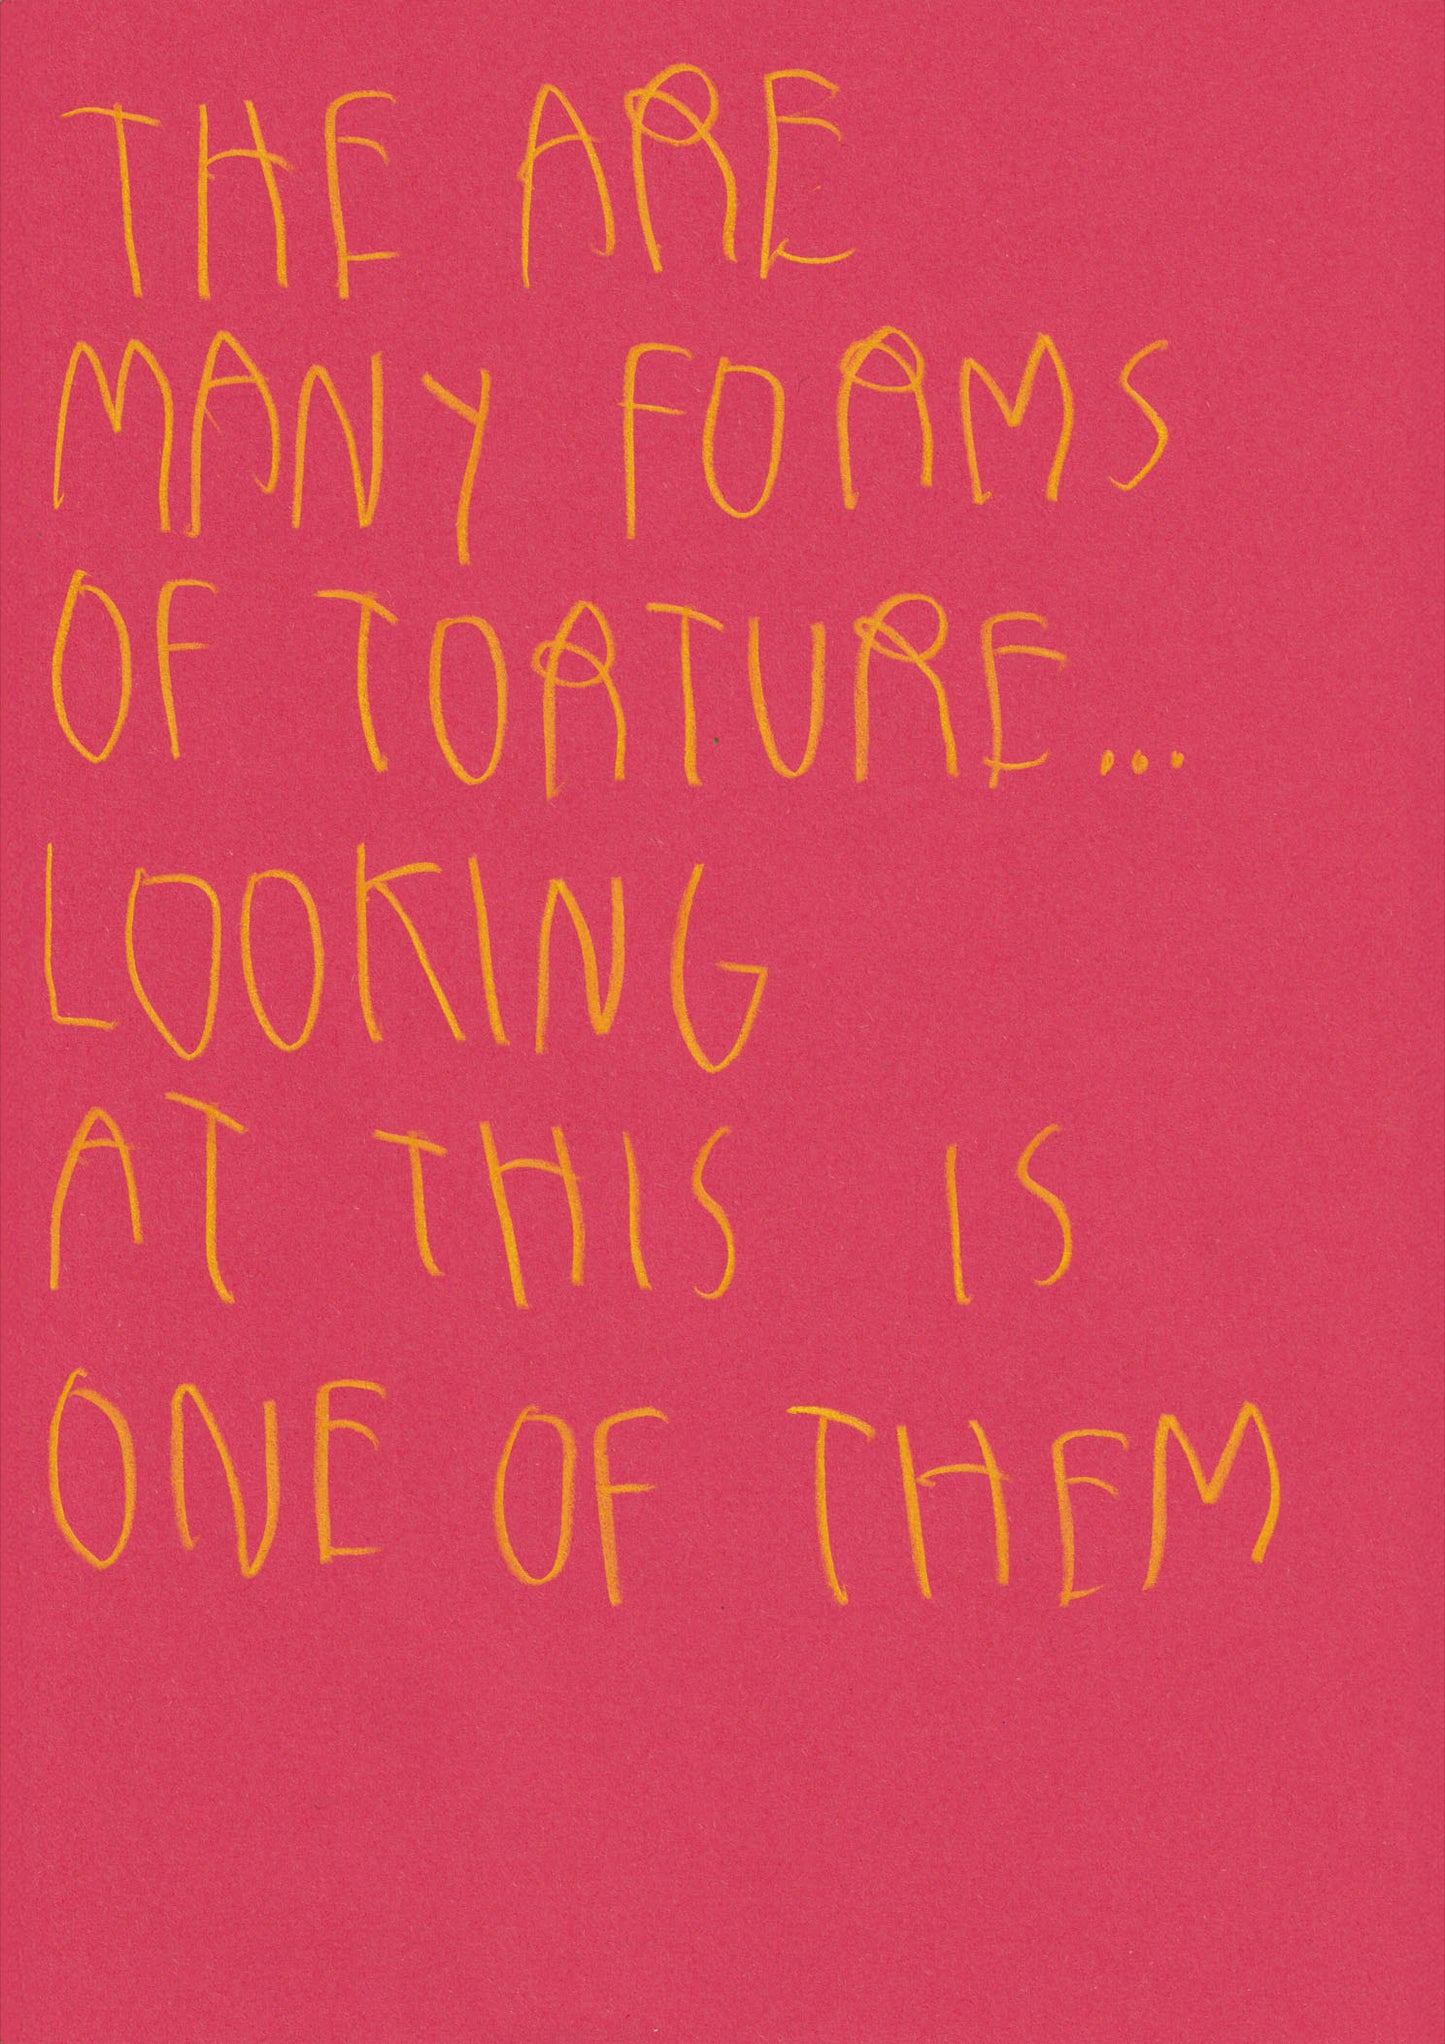 THE ARE
MANY FORMS
OF TORTURE...
LOOKING
AT THIS IS
ONE OF THEM